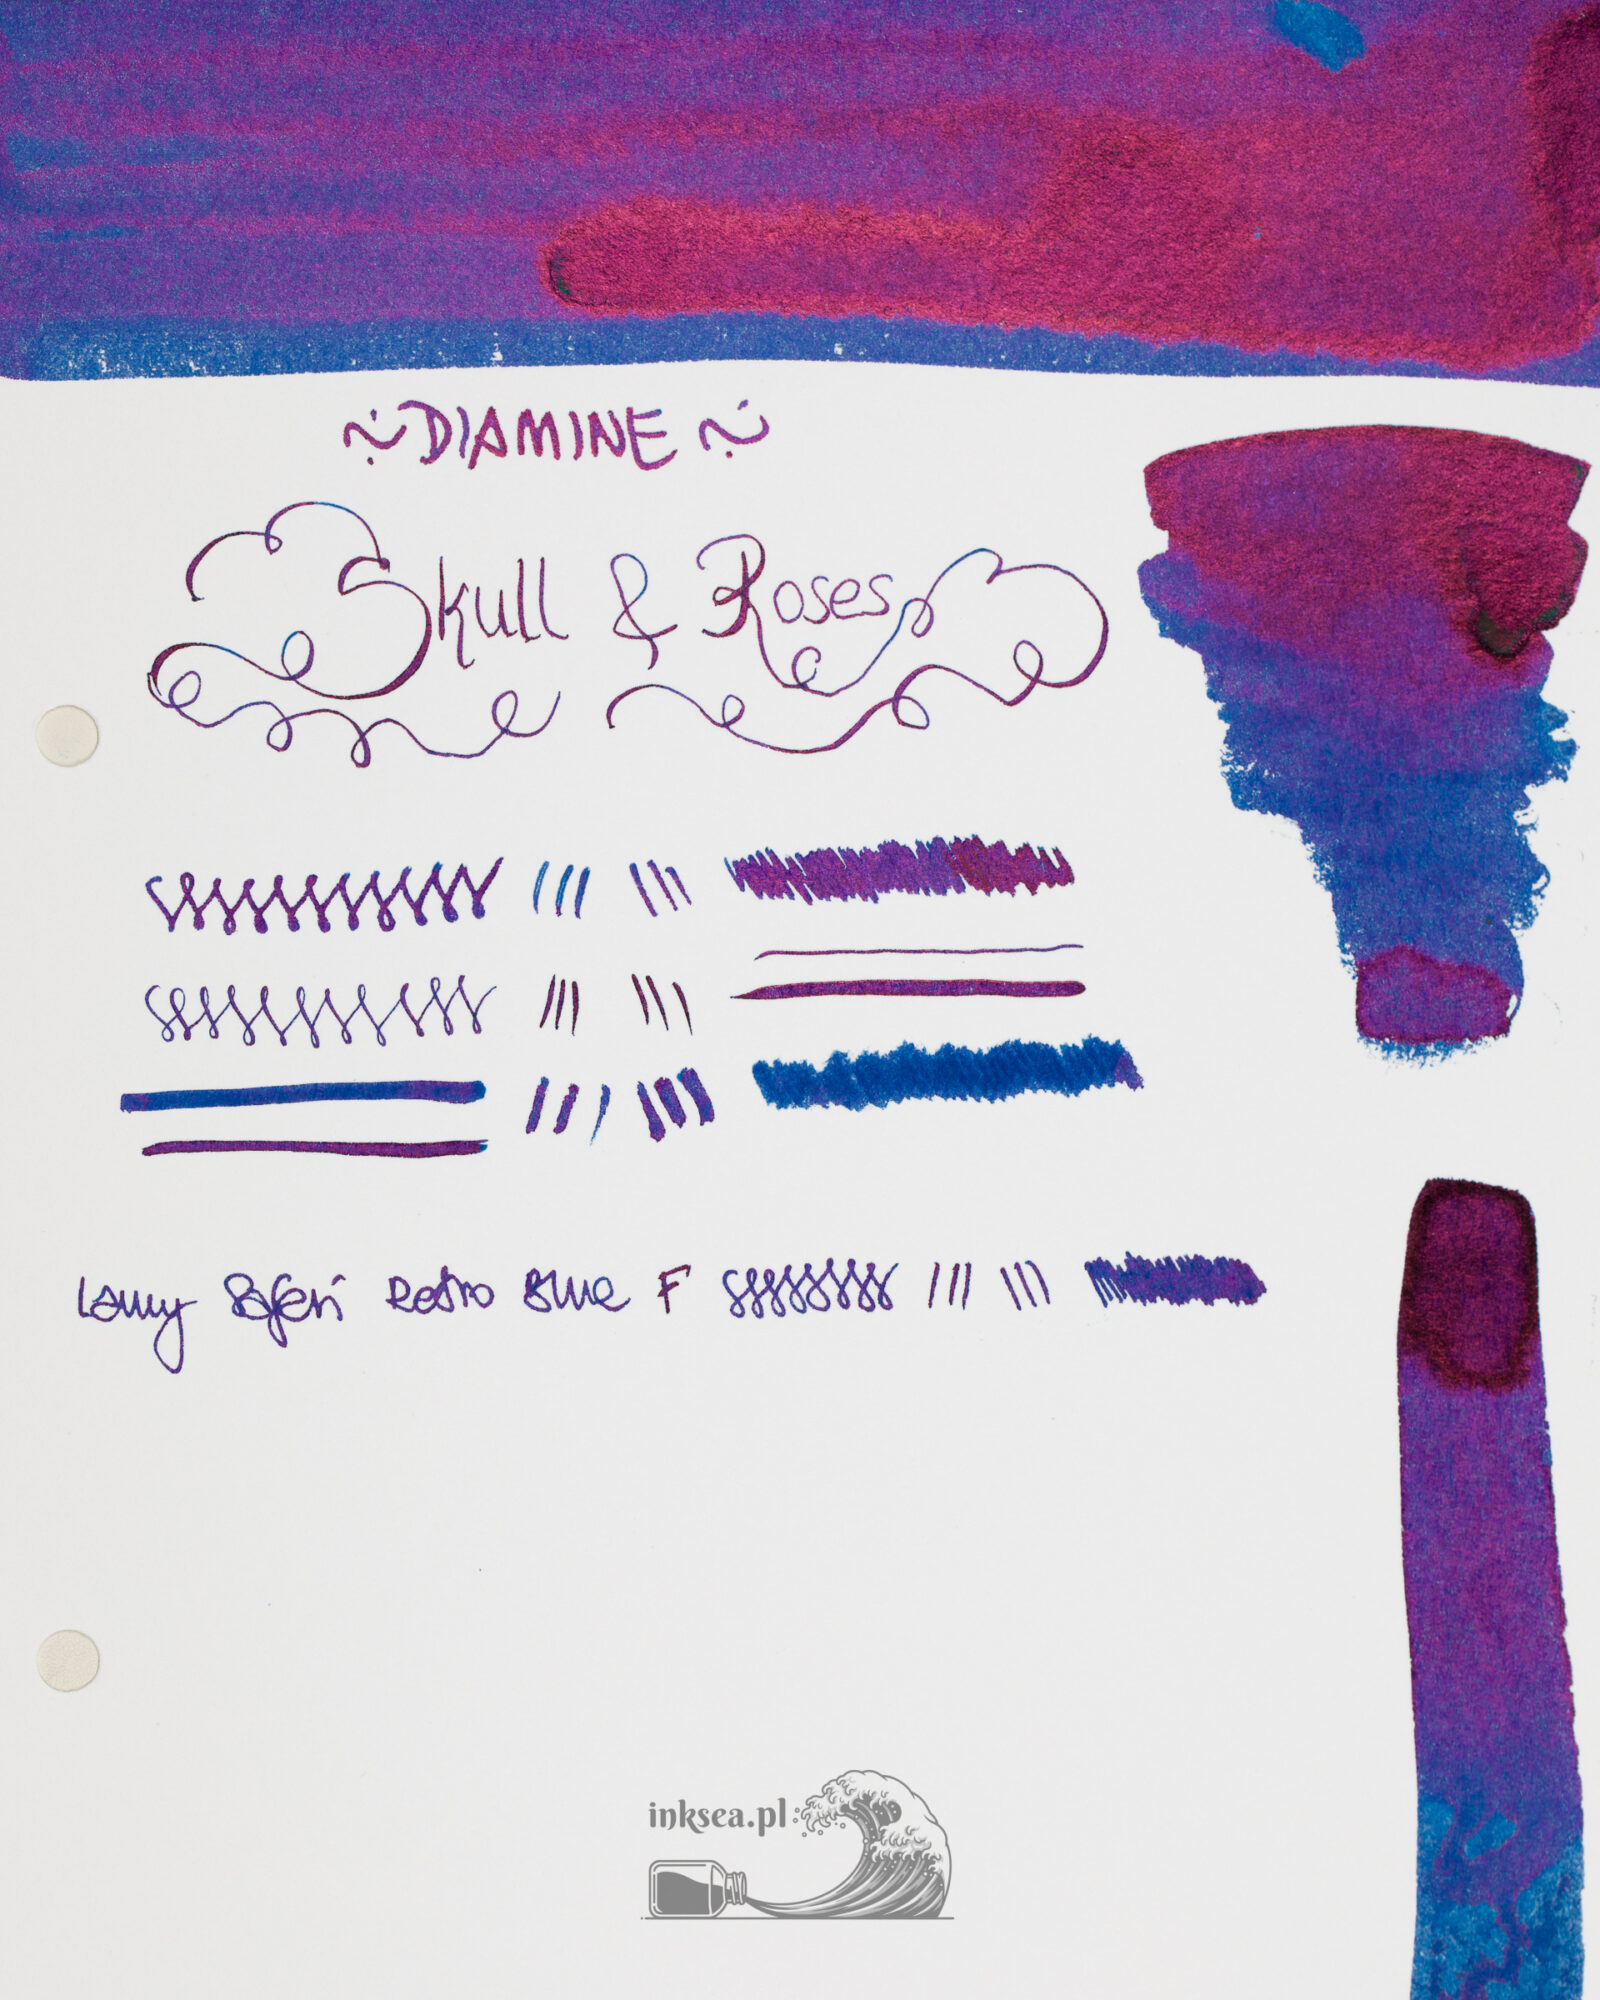 ~DIAMINE~
Skull & Roses
Lamy Safari Retro Blue F
inksea.pl